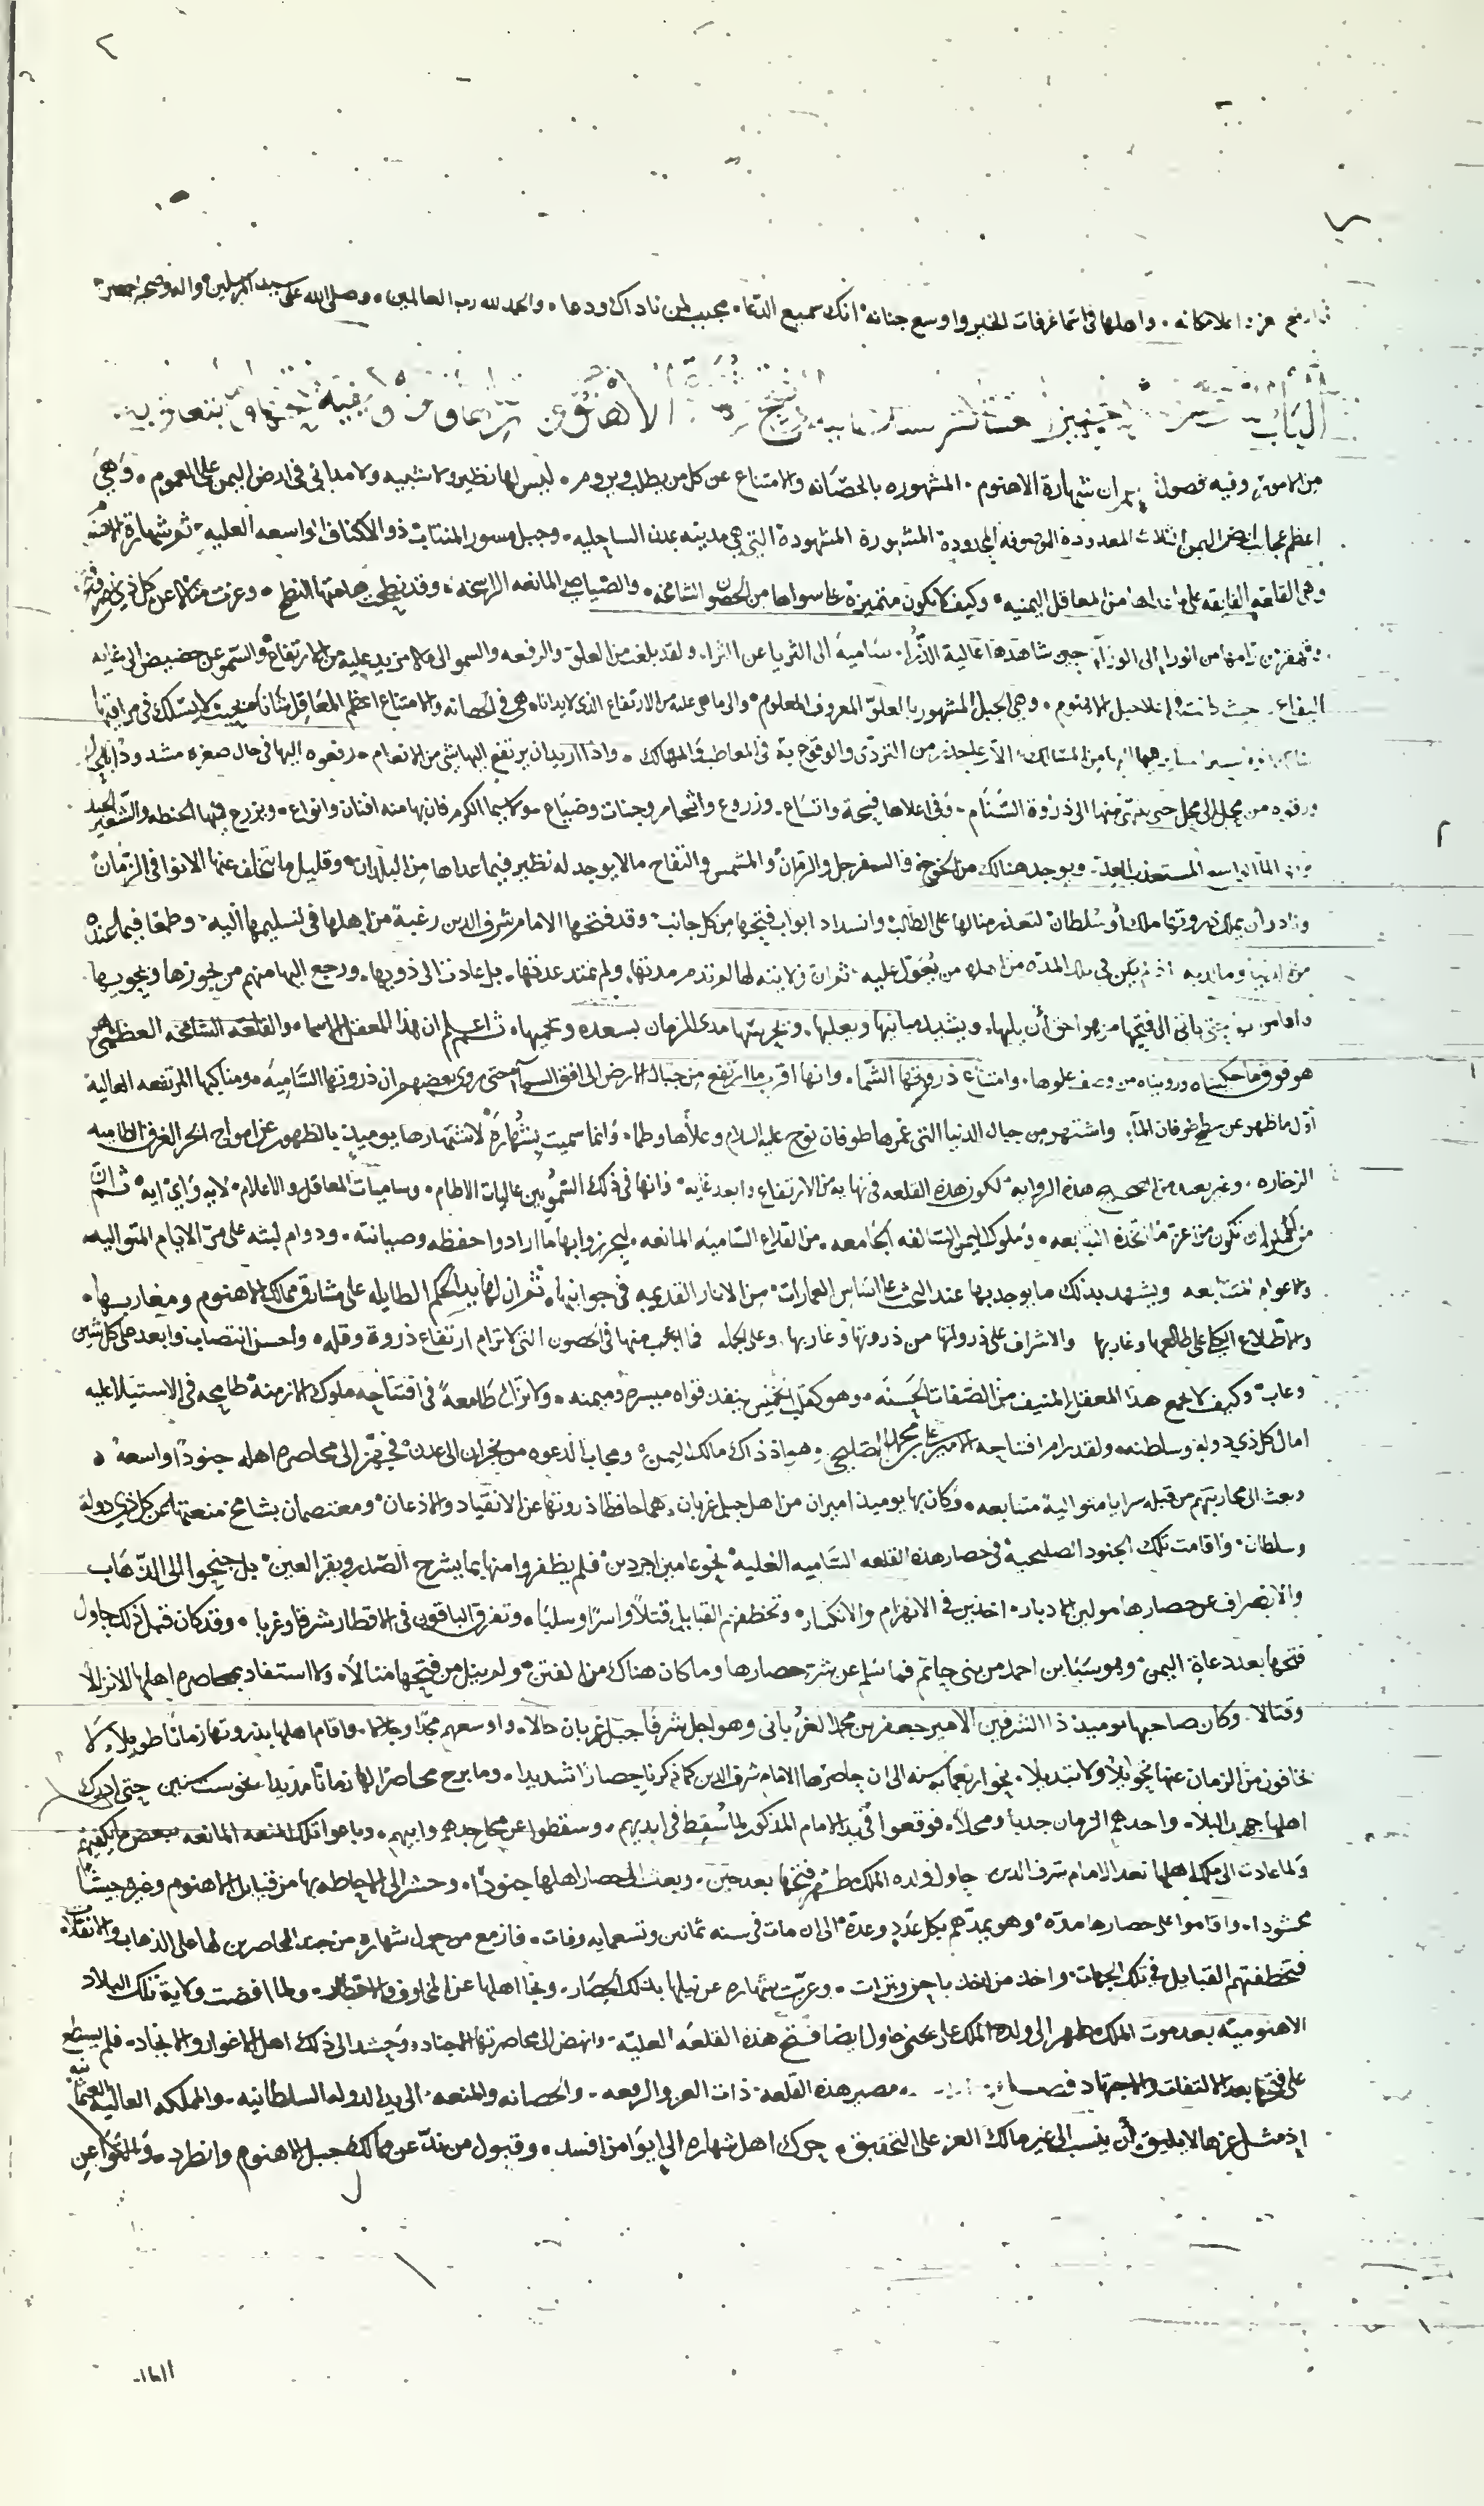 ٢
واحلها في اسما غرفات الخير واوسع جنانه انك سميع الدعا مجيب لمن ناداك ودعا والحمد لله رب العالمين وصلى الله على سيد المرسلين واله وصحبه اجمعين
الباب
وفيه فصول شهارة الاهنوم المشهوره بالحصانه والامتناع عن كل من يطلب ويروم ليس لها نظير ولا شبيه ولا مداني في ارض اليمن على العموم وهي
اعظم عجايب ارض اليمن الثلاث المعدودة الموصوفة المحدودة المشهورة المشهودة التي هي مدينه عدن الساحليه وجبل مسور المنتاب ذو الاكناف الواسعه العليه ثم شهارة
وهي القلعه الفايقه على ما عداها من المعاقل اليمنيه وكيف لا تكون متميزة عما سواها من الحصون الشامخه والصياصي المانعه الراسخه وقد نطحت هامتها النطح وعزت منالا عن كل ذي
من انوار الى الوزاء شاهدها عالية الذرا ساميه الى الثريا عن الثرا ولقد بلغت من العلو والرفعه والسمو الى ما لا مزيد عليه من الارتفاع والسمو عن حضيض الى غايه
اليفاع الاهنوم وهي الجبل المشهور بالعلو المعروف المعلوم والى ما هي عليه من الارتفاع الذي لا يدانا هي في الحصانه والامتناع اعظم المعاقل شانا بحيث لا يسلك في مراقيها
من المسالك الا على حذر من التردي والوقوع به في المعاطب والمهالك واذا اريد ان يرتفع اليها شي من الانعام رفعوه اليها في حال صغره
ورقوه من محل الى محل حتى ينتهي منها الى ذروة السنام وفي اعلاها فيحة واتساع وزروع واشجار وجنات وضياع ولا سيما الكرم فان بها منه افنان وانواع ويزرع فيها الحنطه والشعير الجيد
المستعذب ويوجد هنالك من الخوخ والسفرجل والرمان والمشمس والتفاح ما لا يوجد له نظير فيما عداها من البلدان وقليل ما تتخلف عنها الانوا في الزمان
ونادر أن يملك ذروتها ملك أو سلطان لتعذر منالها على الطالب وانسداد ابواب فتحها من كل جانب وقد فتحها الامام شرف الدين رغبة من اهلها في تسليمها اليه وطمعا فيما عنده
وما لديه اذ لم يكن في تلك المدة من اهله من يعول عليه ثم ان ولايته لها لم تدم مدتها ولم تمتد عدتها بل عادت الى ذويها ورجع اليها منهم من يحوزها ويحويها
الى فتحها من هو احق أن يليها ويشيد مبانيها ويعليها مدى الزمان بسعده ويحميها ثم اعلم ان هذا المعقل الاسما والقلعه الشامخه العظمى
هو فوق ما حكيناه ورويناه من وصف علوها وامتناع ذروتها الشما وانها اقرب ما ارتفع من جبال الارض الى افق السما حتى روى بعضهم ان ذروتها الساميه ومناكبها المرتفعه العاليه
اول ما ظهر عن سطح طوفان الماء واشتهر من جبال الدنيا التي غمرها طوفان نوح عليه السلام وعلاها وطما وانما سميت بشهارة لاشتهارها يوميذ بالظهور عن امواج البحر الغرق الطاميه
الزخاره وغير بعيد من الصحيح هذه الروايه لكون هذه القلعه في نهايه من الارتفاع وابعد غايه وانها في ذلك السمو بين عاليات الاطام وساميات المعاقل والاعلام لايه واي ايه ثم ان
تكون من اعز ما اتخذه التبابعه وملوك اليمن السالفه الجامعه من القلاع الساميه المانعه ليحرزوا بها ما ارادوا حفظه وصيانته ودوام لبثه على مر الايام المتواليه
والاعوام المتتابعه ويشهد بذلك ما يوجد بها عند البحث على اساس العمارات من الاثار القديمه في جوانبها ثم ان لها يد الحكم الطايله على مشارق ممالك الاهنوم ومغاربها
والاطلاع الكلي على طالعها وغاربها والاشراف على ذروتها من ذروتها وغاربها وعلى الجمله في الحصون التي لا ترام ارتفاع ذروة وقله ولحسن انتصاب وابعد عن كل شاين
وعاب وكيف لا يجمع هذا المعقل المنيف من الصفات الحسنه وهو كقلب الخميس ينفذ قواه ميسره وميمنه ولا تزال طامعة في افتتاحه ملوك الازمنه طامحه في الاستيلا عليه
امال كل ذي دولة وسلطنه ولقد رام افتتاحه الامير علي بن محمد الصليحي هو اذ ذاك مالك اليمن ومجاب الدعوه من نجران الى عدن فجهز الى محاصره اهله جنودا واسعه
وبعث الى محاربتهم من قبله سرايا متواليه متتابعه وكان بها يوميذ اميران من اهل جبل غربان هما حافظا ذروتها عن الانقياد والاذعان ومعتصمان بشامخ منعتها عن كل ذي دولة
وسلطان واقامت تلك الجنود الصليحية في حصار هذه القلعه الساميه العليه نحو عامين اجردين فلم يظفروا منها بما يشرح الصدر ويقر العين بل جنحوا الى الذهاب
والانصراف عن حصارها مولين الادبار اخذين في الانهزام والانكسار وتخطفتهم القبايل قتلا واسرا وسلبا وتفرق الباقون في الاقطار شرقا وغربا وقد كان قبل ذلك حاول
فتحها بعد دعاة اليمن وهو سبا بن احمد من بني حاتم فما سلم عن شر حصارها وما كان هناك من الفتن ولم ينل من فتحها منالا ولا استفاد بمحاصره اهلها الا نزالا
وقتالا وكان صاحبها يوميذ ذا الشرفين الامير جعفر بن محمد الغرباني وهو اجل شرفا جبل غربان حالا واوسعهم مجدا وجلالا واقام اهلها بذروتها زمانا طويلا لا
يخافون من الزمان عنها تحويلا ولا تبديلا نحو اربعمايه سنه الى ان حاصرها الامام شرف الدين كما ذكرنا حصارا شديدا وما برح محاصرا لها زمانا مديدا نحو ست سنين حتى ادرك
اهلها جهد البلاء واحدهم الزمان جدبا ومحلا فوقعوا في يد الامام المذكور لما سقط في ايديهم وسقطوا عن وباعوا تلك المنعه المانعه ببعض ما يكفيهم
ولما عادت الى ملك اهلها بعد الامام شرف الدين حاول ولده الملك مطهر فتحها بعد حين وبعث الى حصار اهلها جنودا وحشر الى الاحاطه بها من قبايل الاهنوم وغيره جيشا
محشودا واقاموا على حصارها مده وهو يمدهم بكل عدد وعدة الى ان مات في سنه ثمانين وتسعمايه وفات فازمع من حول شهاره من جند المحاصرين لها على الذهاب والانفلات
فتخطفتهم القبايل في تلك الجهات واخذ من اخذ باحن وترات وعزت شهاره عن نيلها بذلك الحصار ونجا اهلها عن المخاوف والاخطار ولما افضت ولاية تلك البلاد
الاهنوميه بعد موت الملك مطهر الى ولده الملك علي يحيى حاول ايضا فتح هذه القلعه العليه وانهض الى محاصرتها الاجناد وحشد الى ذلك اهل الاغوار والانجاد فلم يستطع
على فتحها بعد الالتفات والاجتهاد مصير هذه القلعه ذات العز والرفعه والحصانه والمنعه الى يد الدوله السلطانيه والمملكه العاليه العثمانيه
اذ مثل عزها لا يليق أن ينسب الى غير مالك العز على التحقيق حرك اهل شهاره الى ايوا من افسد وقبول من ند عن ممالك جبل الاهنوم وانطرد